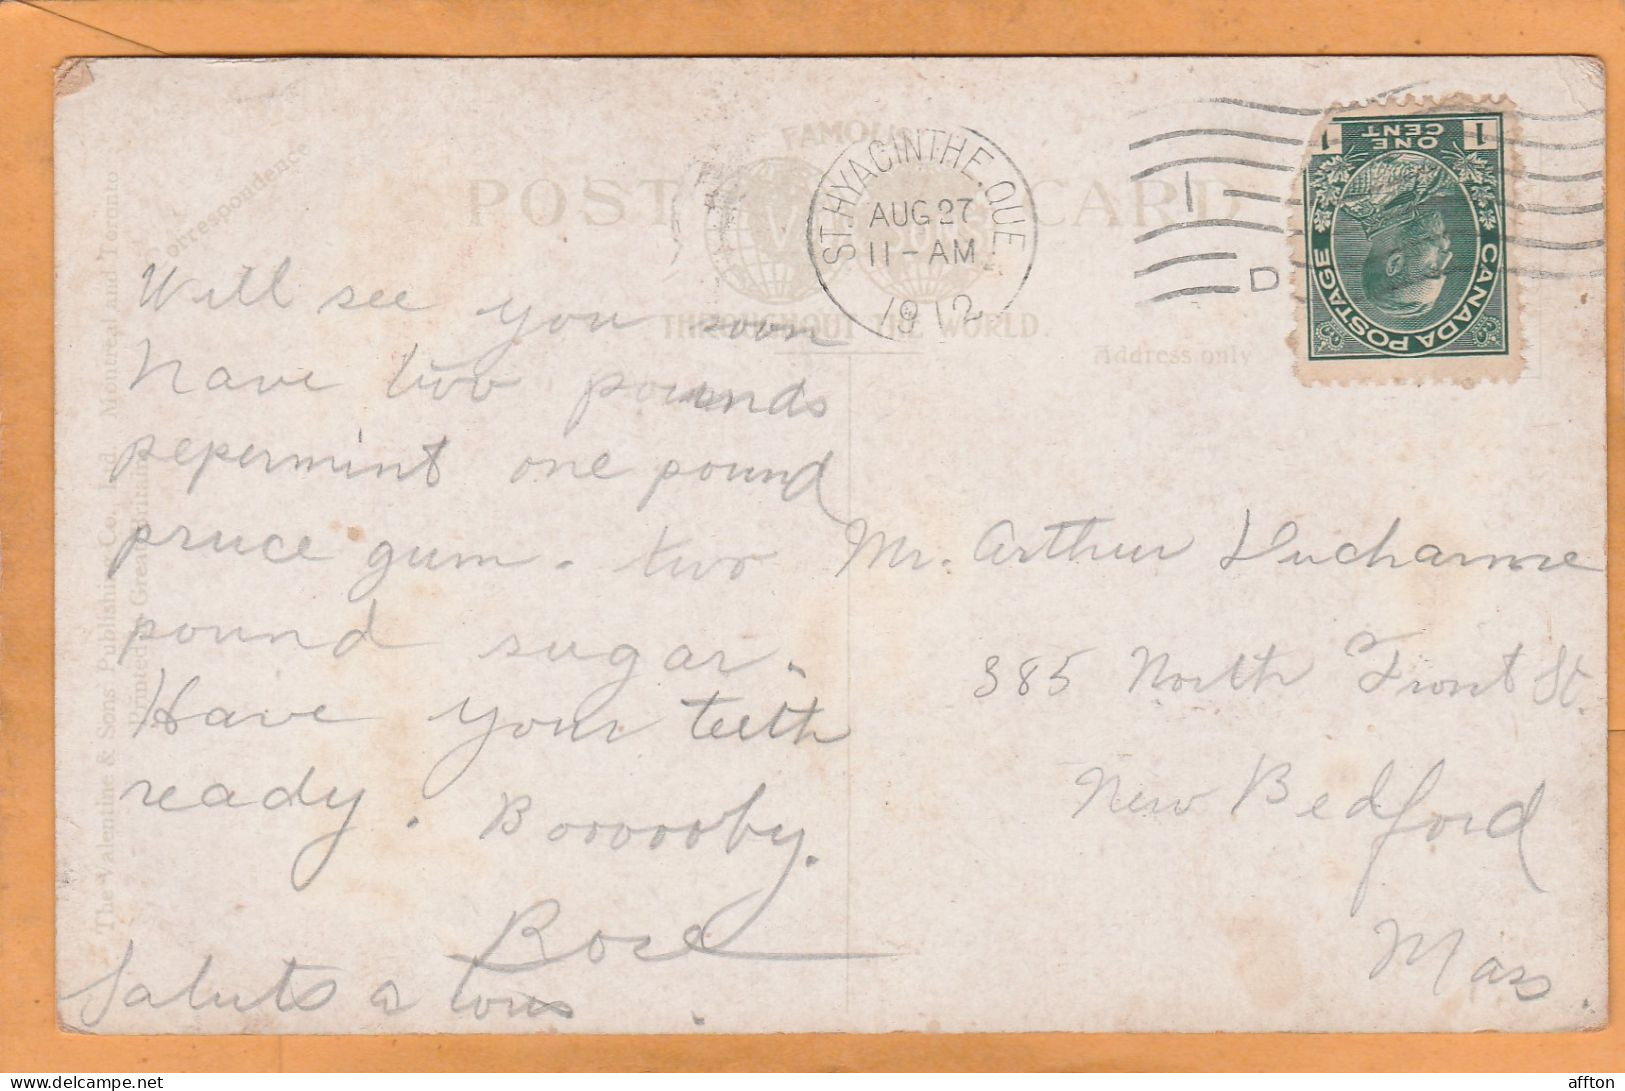 FAMOUS
POST CARD
V & SONS
THROUGHOUT THE WORLD.
Correspondence
Address only
The Valentine & Sons' Publishing Co., Ltd. Montreal and Toronto
Printed in Great Britain
ST. HYACINTHE. QUE
AUG 27
11-AM
1912
1
D
1 ONE CENT 1
CANADA POSTAGE
Will see you soon
have two pounds
pepermint one pound
pruce gum. two
pound sugar.
Have your teeth
ready. Boooooby.
Rose
Saluts a tous.
Mr. Arthur Ducharme
385 North Front St.
New Bedford
Mass.
delcampe.net
affton